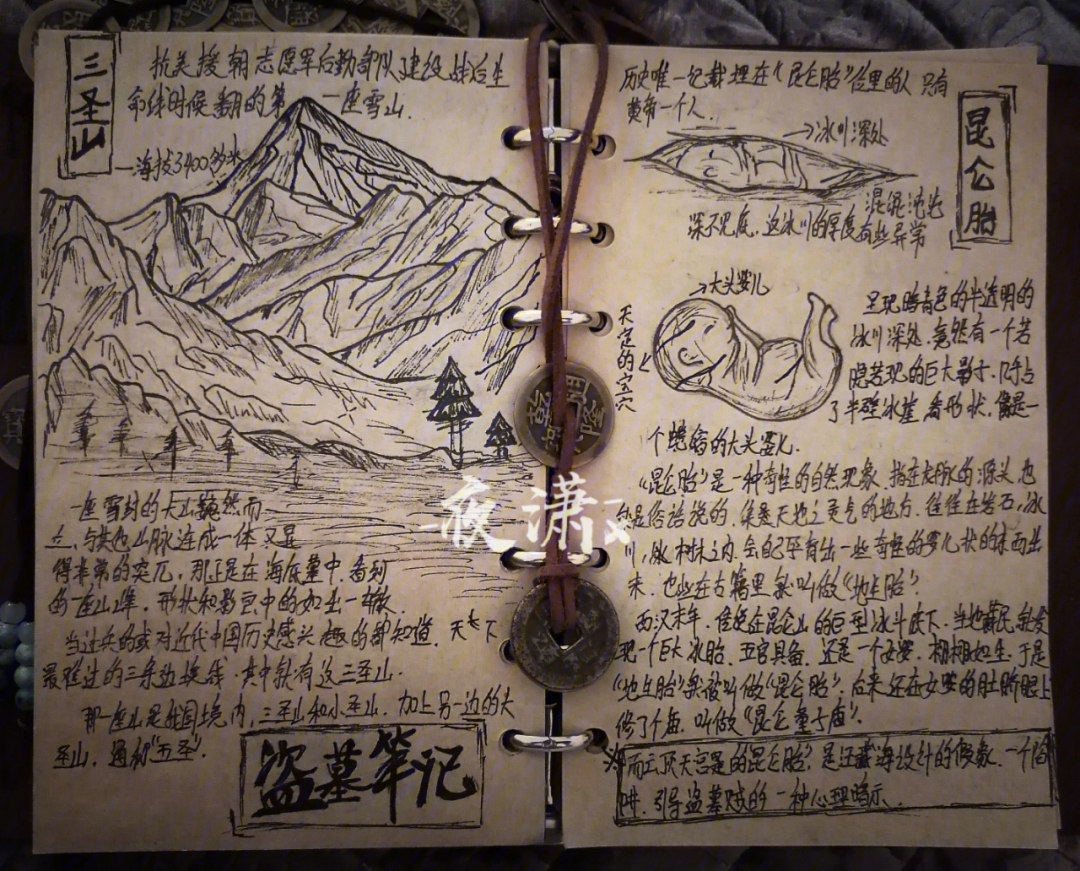 三圣山
抗美援朝志愿军后勤部队建设战后生
命线时候翻的第一座雪山.
海拔3400多米
一座雪封的大山巍然而
立,与其他山脉连成一体又显
得非常的突兀,那正是在海底墓中,看到
的一座山峰,形状和影画中的如出一辙.
当过兵的或对近代中国历史感兴趣的都知道.天之下
最难过的三条边境线.其中就有这三圣山.
那一座山是在国境内,三圣山和小圣山.加上另一边的大
圣山,通称"五圣".
盗墓笔记
夜潇
历史唯一纪载埋在《昆仑胎》位里的人 只有
黄帝一个人.
昆仑胎
冰川深处
混混沌沌
深不见底.这冰川的厚度有些异常
大头婴儿
天定的宝穴
呈现暗青色的半透明的
冰川深处,竟然有一个若
隐若现的巨大影子.几乎占
了半壁冰崖,看形状,像是一
个蜷缩的大头婴儿.
《昆仑胎》是一种奇怪的自然现象.指在龙脉的源头,也
就是俗话说的,集聚天地之灵气的地方.往往在岩石,冰
川,木之内,会自己孕育出一些奇怪的婴儿状的东西出
来.也些在古籍里就叫做《地生胎》.
西汉末年,传说在昆仑山的巨型冰斗底下.当地藏民就发
现一个巨大冰胎.五官具备.还是一个女婴.栩栩如生.于是
《地生胎》就被叫做《昆仑胎》.后来还在女婴的肚脐眼上
修了个庙.叫做《昆仑童子庙》.
※而云顶天宫里的昆仑胎?是汪藏海设计的假象.一个陷
阱.引导盗墓贼的一种心理暗示.